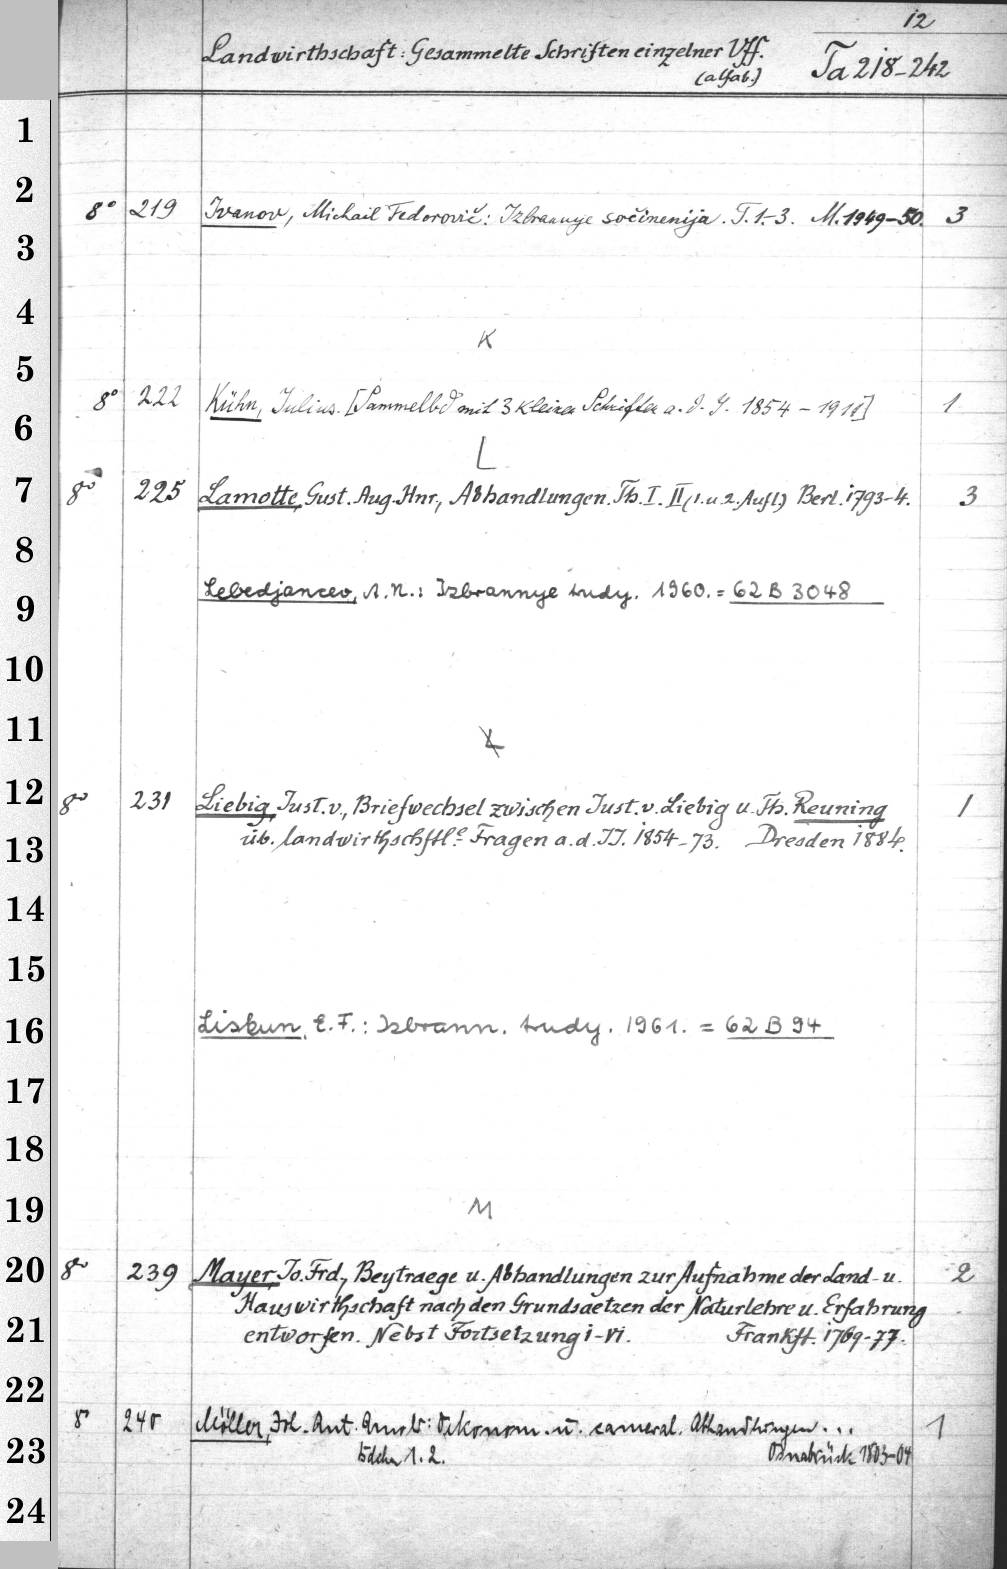 12
Landwirthschaft: Gesammelte Schriften einzelner Vff.
(alfab.)
Ta 218-242
1
2
8° 219 Ivanov, Michail Fedorovič: Izbrannye sočinenija. T. 1.-3. M. 1949-50. 3
3
4
K
5
8° 222 Kühn, Julius. [Sammelbd mit 3 kleinen Schriften a. d. J. 1854 - 1911] 1
6
L
7
8° 225 Lamotte, Gust. Aug. Hnr., Abhandlungen. Th. I. II (1. u. 2. Aufl.) Berl. 1793-4. 3
8
Lebedjancev, A. N.: Izbrannye trudy. 1960. = 62 B 3048
9
10
11
L
12
8° 231 Liebig, Just. v., Briefwechsel zwischen Just. v. Liebig u. Th. Reuning 1
üb. landwirthschftl.e Fragen a. d. JJ. 1854-73. Dresden 1884.
13
14
15
16
Liskun, E. F.: Izbrann. trudy. 1961. = 62 B 94
17
18
19
M
20
8° 239 Mayer, Jo. Frd., Beytraege u. Abhandlungen zur Aufnahme der Land- u. 2
Hauswirthschaft nach den Grundsaetzen der Naturlehre u. Erfahrung
21
entworfen. Nebst Fortsetzung i-vi. Frankft. 1769-77.
22
8° 240 Möller, Ant. Oekonom. u. cameral. Abhandlungen... 1
23
Bdchn 1. 2. Osnabrück 1803-04
24